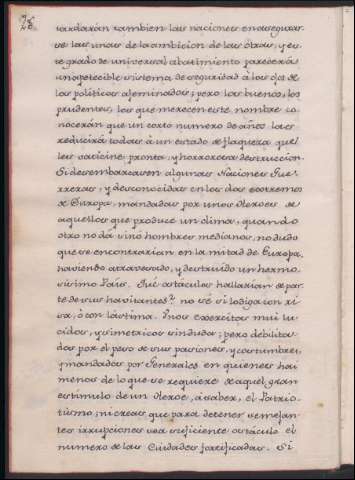 28.
tardarán tambien las naciones en asegurar-
se las unas de la ambicion de las otras, y es-
te grado de universal abatimiento parecerá
un apetecible sistema de seguridad à los ojos de
los politicos afeminados; pero los buenos, los
prudentes, los que merecen este nombre co-
nocerán que un corto numero de años las
reducirá todas à un estado de flaqueza que
les vaticine pronta, y horrorosa destruccion.
Si desembarcasen algunas Naciones Gue-
rreras, y desconocidas en los dos extremos
de Europa, mandadas por unos Heroes de
aquellos que produce un clima, quando
otro no dá sinó hombres medianos, no dudo
que se encontrarían en la mitad de Europa,
haviendo atravesado, y destruido un hermo-
sisimo País. Qué obstaculos hallarían de par-
te de sus havitantes? no sé si lo diga con ri-
sa, ò con lástima. Unos Exercitos mui lu-
cidos, y simetricos sin duda; pero debilita-
dos por el peso de sus pasiones, y costumbres,
y mandados por Generales en quienes hai
menos de lo que se requiere de aquel gran
estimulo de un Heroe, à saber, el Patrio-
tismo; ni creas, que para detener semejan-
tes irrupciones sea suficiente obstaculo el
numero de las Ciudades fortificadas. Si